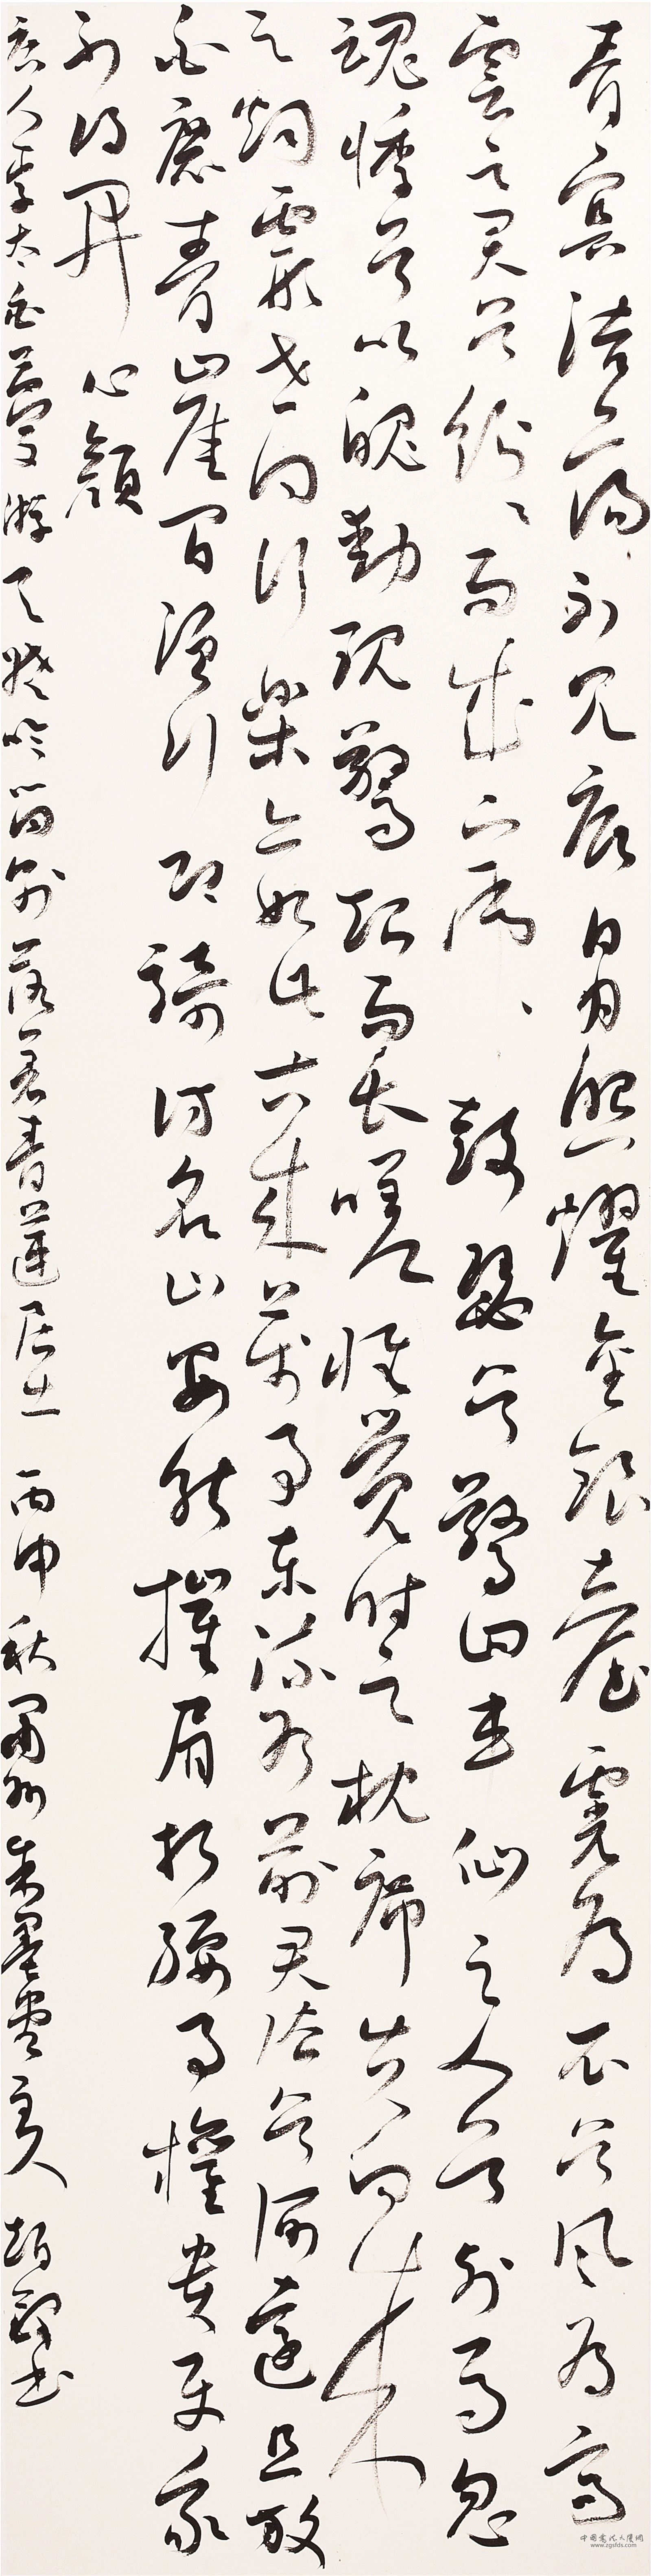 青冥浩蕩不見底日月照耀金銀臺霓為衣兮風為馬
雲之君兮紛紛而來下虎鼓瑟兮鸞回車仙之人兮列如麻忽
魂悸兮以魄動怳驚起而長嗟惟覺時之枕席失向來
之煙霞世間行樂亦如此古來萬事東流水別君去兮何還且放
白鹿青崖間須行即騎訪名山安能摧眉折腰事權貴使我
不得開心顏
唐人李太白夢游天姥吟留別 青蓮居士 丙申秋 墨堂主人 書
中国书法大厦网
www.zgsfds.com